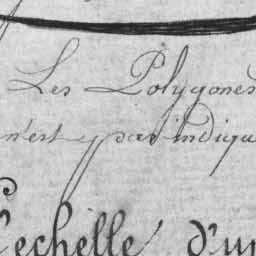 Les Polygones
n'est pas indiqu
l'echelle d'un